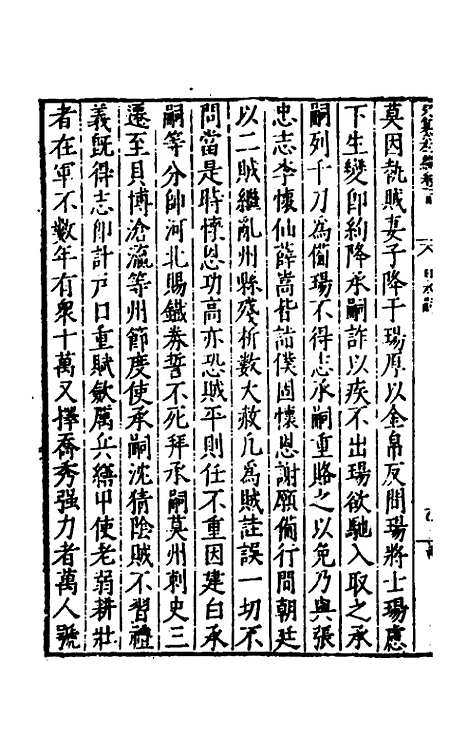 莫因執賊妻子降于瑒厚以金帛反間瑒將士瑒慮
下生變即約降承嗣詐以疾不出瑒欲馳入取之承
嗣列千刀為備瑒不得志承嗣重賂之以免乃與張
忠志李懷仙薛嵩皆詣僕固懷恩謝願備行間朝廷
以二賊繼亂州縣殘析數大赦凡為賊詿誤一切不
問當是時懷恩功高亦恐賊平則任不重因建白承
嗣等分帥河北賜鐵券誓不死拜承嗣莫州刺史三
遷至貝博滄瀛等州節度使承嗣沈猜陰賊不習禮
義既得志即計戶口重賦斂厲兵繕甲使老弱耕壯
者在軍不數年有衆十萬又擇喬秀强力者萬人號